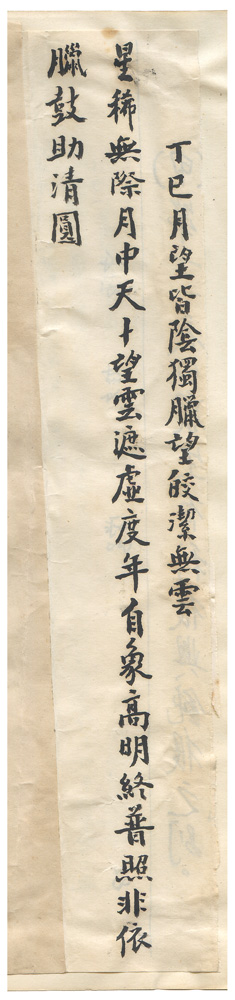 丁巳月望皆陰獨臘望皎潔無雲
星稀無際月中天十望雲遮虛度年自象高明終普照非依
臘鼓助清圓